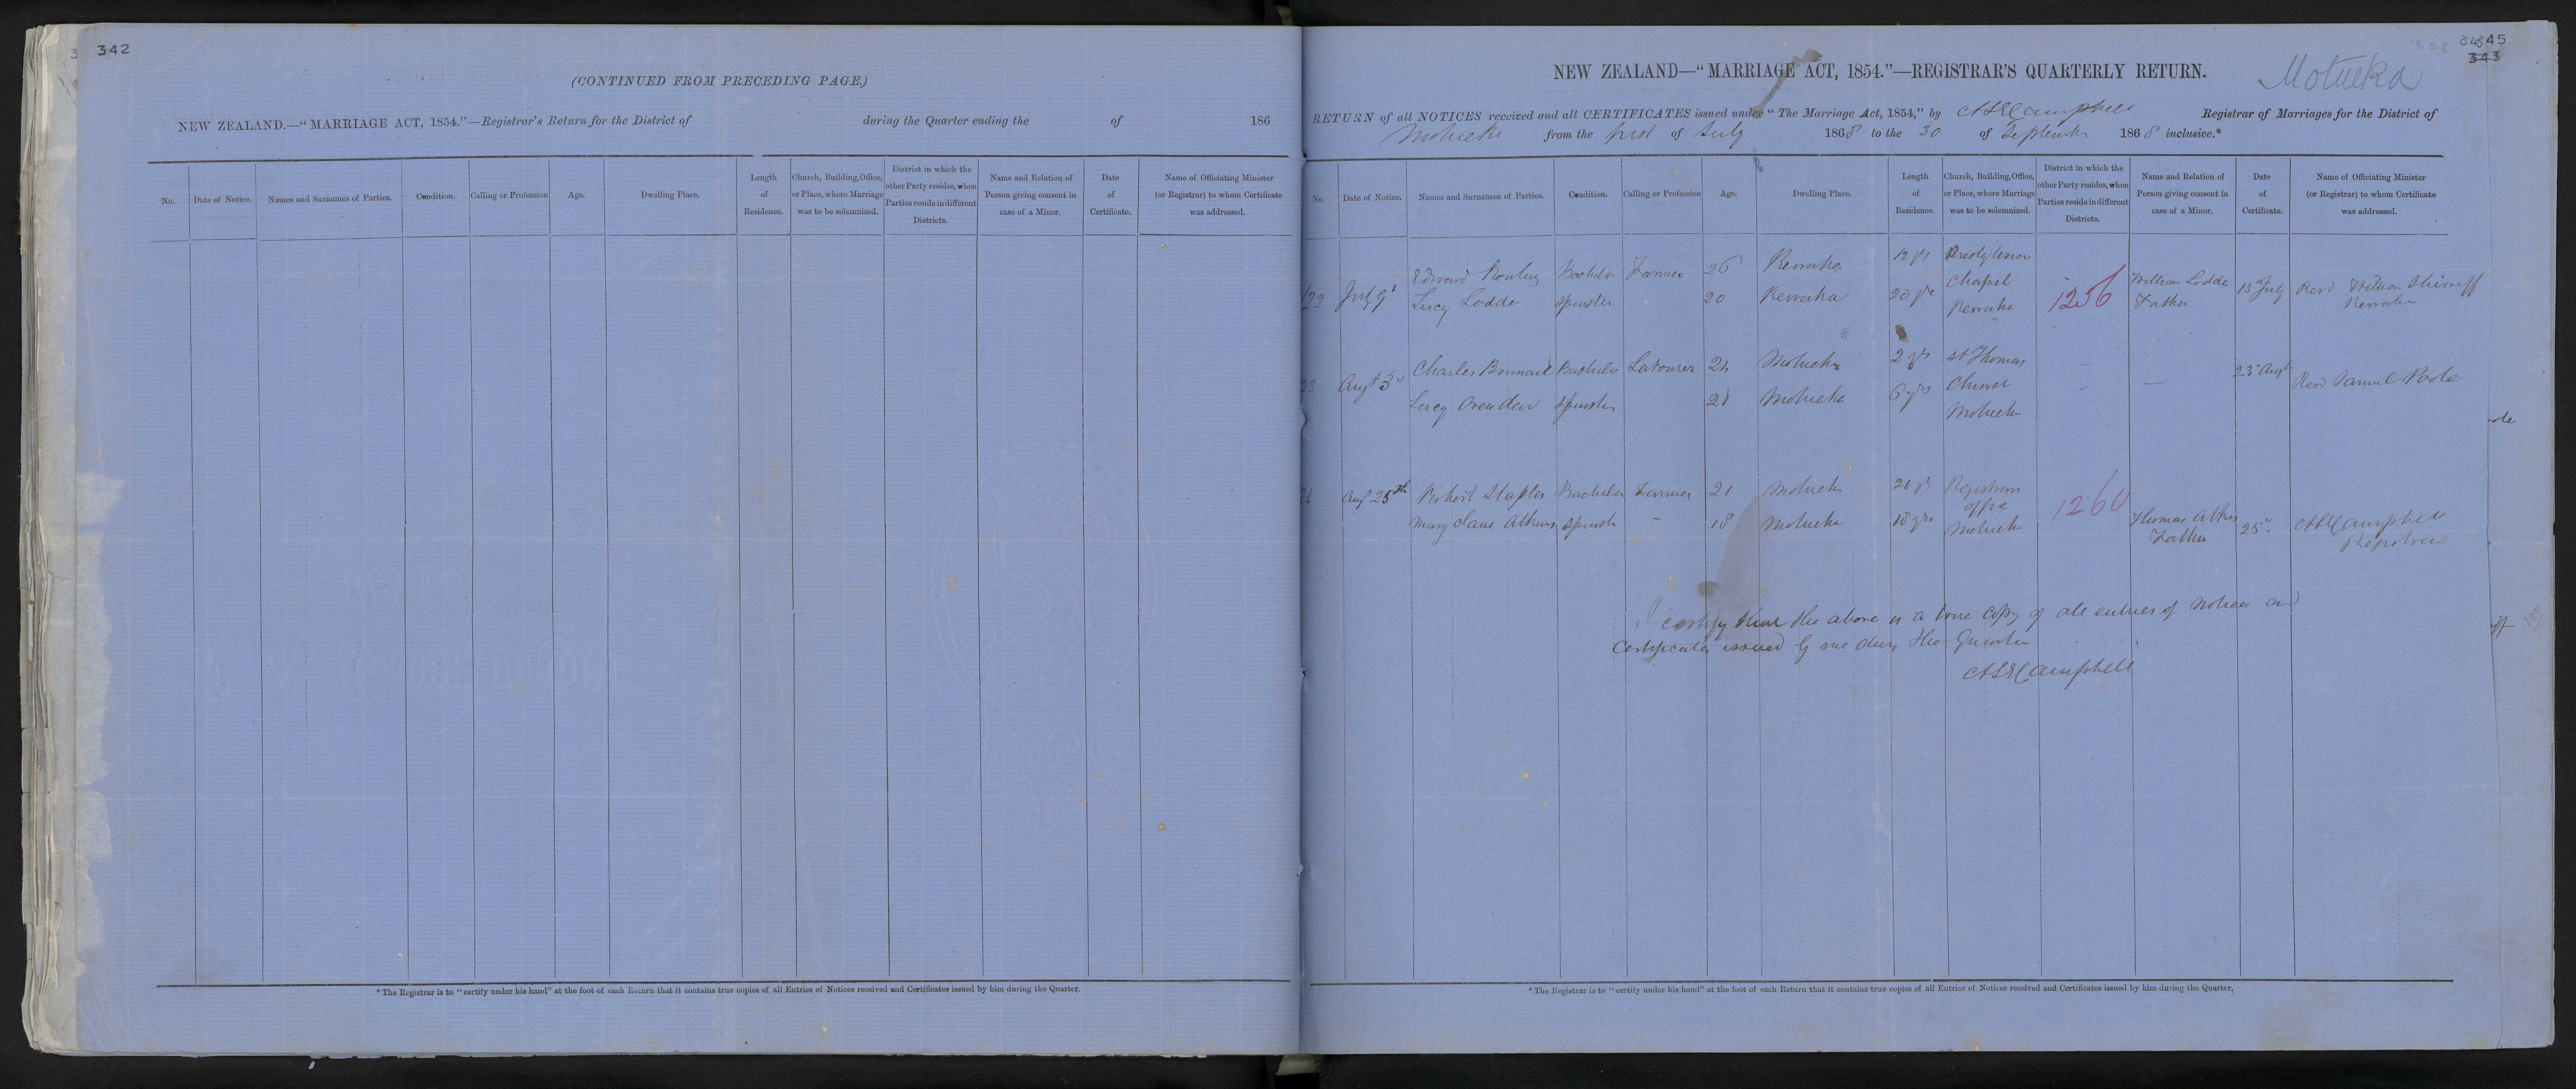 342
(CONTINUED FROM PRECEDING PAGE.)
NEW ZEALAND.—"MARRIAGE ACT, 1854."—Registrar's Return for the District of during the Quarter ending the of 186
No. Date of Notice. Names and Surnames of Parties. Condition. Calling or Profession Age. Dwelling Place. Length of Residence. Church, Building, Office, or Place, where Marriage was to be solemnized. District in which the other Party resides, when Parties reside in different Districts. Name and Relation of Person giving consent in case of a Minor. Date of Certificate. Name of Officiating Minister (or Registrar) to whom Certificate was addressed.
*The Registrar is to "certify under his hand" at the foot of each Return that it contains true copies of all Entries of Notices received and Certificates issued by him during the Quarter.
45
343
NEW ZEALAND—"MARRIAGE ACT, 1854."—REGISTRAR'S QUARTERLY RETURN.
Motueka
RETURN of all NOTICES received and all CERTIFICATES issued under "The Marriage Act, 1854," by Campbell Registrar of Marriages for the District of
Motueka from the first of July 1868 to the 30 of September 1868 inclusive.*
No. Date of Notice. Names and Surnames of Parties. Condition. Calling or Profession Age. Dwelling Place. Length of Residence. Church, Building, Office, or Place, where Marriage was to be solemnized. District in which the other Party resides, when Parties reside in different Districts. Name and Relation of Person giving consent in case of a Minor. Date of Certificate. Name of Officiating Minister (or Registrar) to whom Certificate was addressed.
Edward Bachelor Farmer 26 12 yrs Presbyterian
22 July 9 Chapel 1256 William Father 13 July Revd William
Lucy Spinster 20 20 yrs
Charles Bachelor Labourer 24 Motueka 2 yrs St Thomas
23 Augt 3 Church 23 Augt Revd Samuel Poole
Lucy Spinster 21 Motueka 6 yrs Motueka
Aug 25th Robert Staples Bachelor Farmer 21 Motueka 21 yrs Registrars office 1260
Mary Jane Atkins Spinster – 18 Motueka 18 yrs Motueka Thomas Atkins Father 25 Campbell Registrar
I certify that the above is a true copy of all entries of Notices and
Certificates issued by me during the Quarter
Campbell
*The Registrar is to "certify under his hand" at the foot of each Return that it contains true copies of all Entries of Notices received and Certificates issued by him during the Quarter.